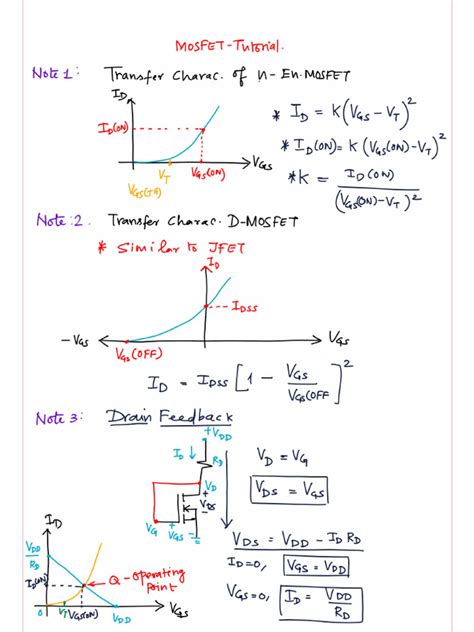 MOSFET-Tutorial.
Note 1: Transfer Charac. of n-En.MOSFET
I_D
I_D(ON)
V_T
V_GS(ON)
V_GS
V_GS(TH)
* I_D = K(V_GS - V_T)^2
* I_D(ON) = K(V_GS(ON) - V_T)^2
* K = I_D(ON) / (V_GS(ON) - V_T)^2
Note:2. Transfer Charac. D-MOSFET
* Similar to JFET
I_D
I_DSS
-V_GS
V_GS
V_GS(OFF)
I_D = I_DSS [1 - V_GS / V_GS(OFF]^2
Note 3: Drain Feedback
+V_DD
I_D ↓
R_D
V_D
+
V_DS
-
V_G
+
V_GS -
V_D = V_G
V_DS = V_GS
V_DS = V_DD - I_D R_D
I_D=0, V_GS = V_DD
V_GS=0, I_D = V_DD / R_D
I_D
V_DD / R_D
I_D(ON)
Q-operating point
0
V_T
V_GS(ON)
V_DD
V_GS